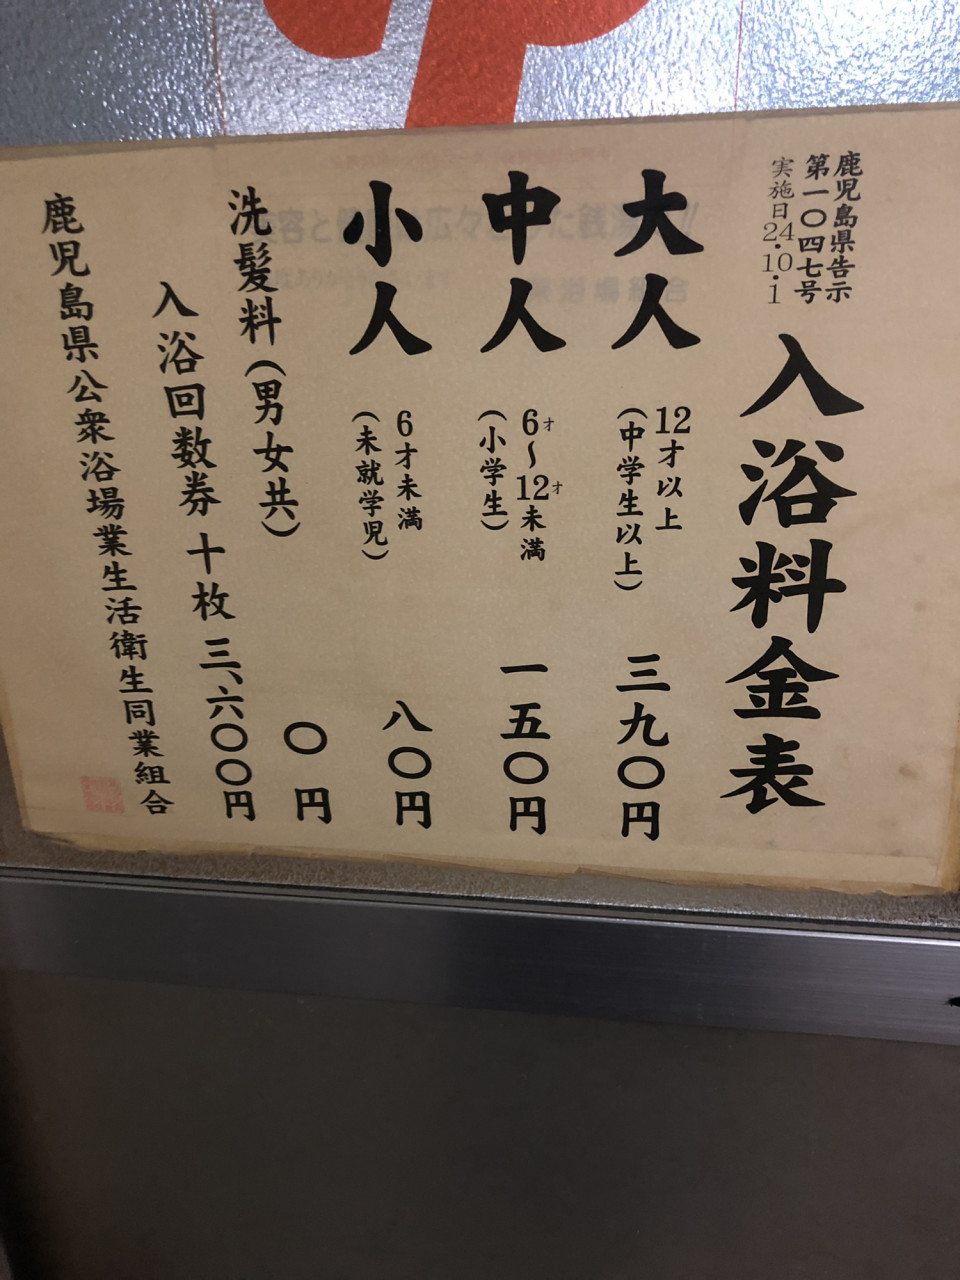 鹿児島県告示
第一〇四七号
実施日24・10・1
入浴料金表
大人
12才以上
(中学生以上)
三九〇円
中人
6才〜12才未満
(小学生)
一五〇円
小人
6才未満
(未就学児)
八〇円
洗髪料(男女共)
〇円
入浴回数券 十枚 三、六〇〇円
鹿児島県公衆浴場業生活衛生同業組合